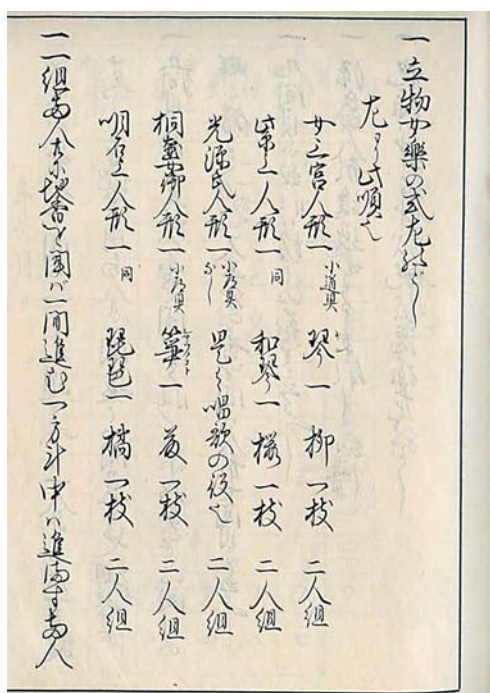 一 立物女樂の式左のことし
左より此順也
女三宮人形一 小道具 琴一 柳一枝 二人組
紫上人形一 同 和琴一 櫻一枝 二人組
光源氏人形一 小道具なし 是ハ唱歌の役也 二人組
桐壺女御人形一 小道具 箏一 藤一枝 二人組
明石上人形一 同 琵琶一 橘一枝 二人組
一 二組両人共に地香を聞バ一間進む一方斗中ハ進ます両人